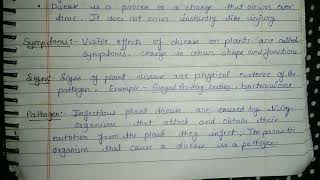 • Disease is a process or a change that occurs over
time. It does not occur instantly like injury
Symptoms:- Visible effects of disease on plants are called
symptoms. change in colour, shape and functions
Signs:- Signs of plant disease are physical evidence of the
pathogen. Example - fungal fruiting bodies, bacterial ooze
Pathogen:- Infectious plant disease are caused by living
organisms that attack and obtain their
nutrition from the plant they infect. The parasitic
organism that cause a disease is a pathogen.